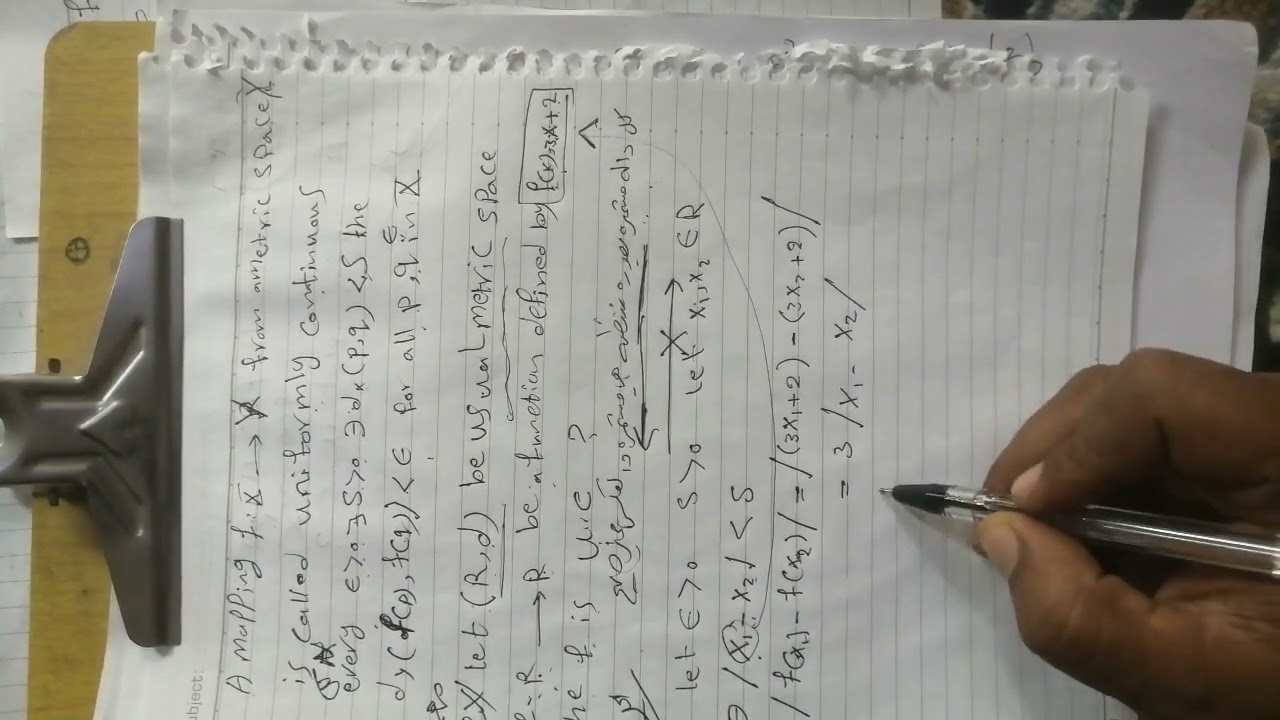 A mapping f: X → Y from ametric space X
is called uniformly continuous
every ϵ>0 ∃ S>0 ∋ dx (p,q) < S the
dy (f(p), f(q)) < ϵ for all p,q ∈ in X
EX/ let (R,d) be usual metric space
f: R → R be afunction defined by f(x)=3x+2
he f is u.c ?
let ϵ>0 S>0 let x₁,x₂ ∈ R
∋ |x₁ - x₂| < S
/ f(x₁) - f(x₂) / = / (3x₁+2) - (3x₂+2) /
= 3 / x₁ - x₂ /
ubject: